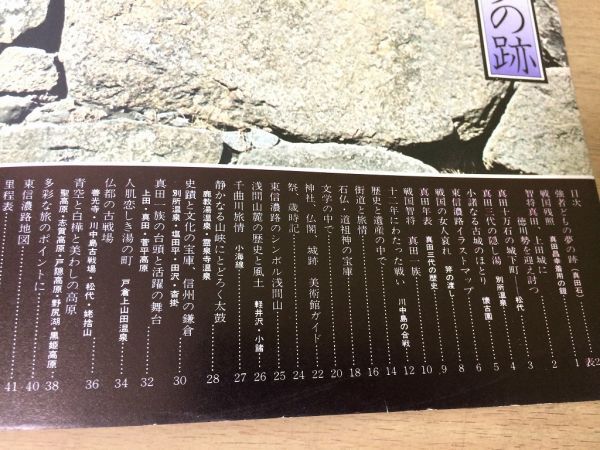 の跡
目次
強者どもの夢の跡（真田石）……表2
戦国残照　真田昌幸着用の鎧……1
智将真田、上田城に
徳川勢を迎え討つ……2
真田十万石の城下町——松代……3
真田三代の隠し湯　別所温泉……4
小諸なる古城のほとり　懐古園……5
東信濃路イラストマップ……6
戦国の女人哀れ　笄の渡し……8
真田年表　真田三代の歴史……9
戦国智将　真田一族……10
十二年にわたった戦い　川中島の合戦……12
歴史と遺産の中で……14
街道と旅情……16
石仏・道祖神の宝庫……18
文学の中で……20
神社、仏閣、城跡　美術館ガイド……22
祭、歳時記……24
東信濃路のシンボル浅間山……25
浅間山麓の歴史と風土　軽井沢・小諸……26
千曲川旅情　小海線……27
静かなる山峡にとどろく太鼓
鹿教湯温泉・霊泉寺温泉……28
史蹟と文化の宝庫、信州の鎌倉
別所温泉・塩田平・田沢・沓掛……30
真田一族の台頭と活躍の舞台
上田・真田・菅平高原……32
人肌恋しき湯の町　戸倉上山田温泉……34
仏都の古戦場
善光寺・川中島古戦場・松代・姥捨山……36
青空と白樺と美わしの高原
聖高原・志賀高原・戸隠高原・野尻湖・黒姫高原……38
多彩な旅のポイントに……
東信濃路地図……40
里程表……41